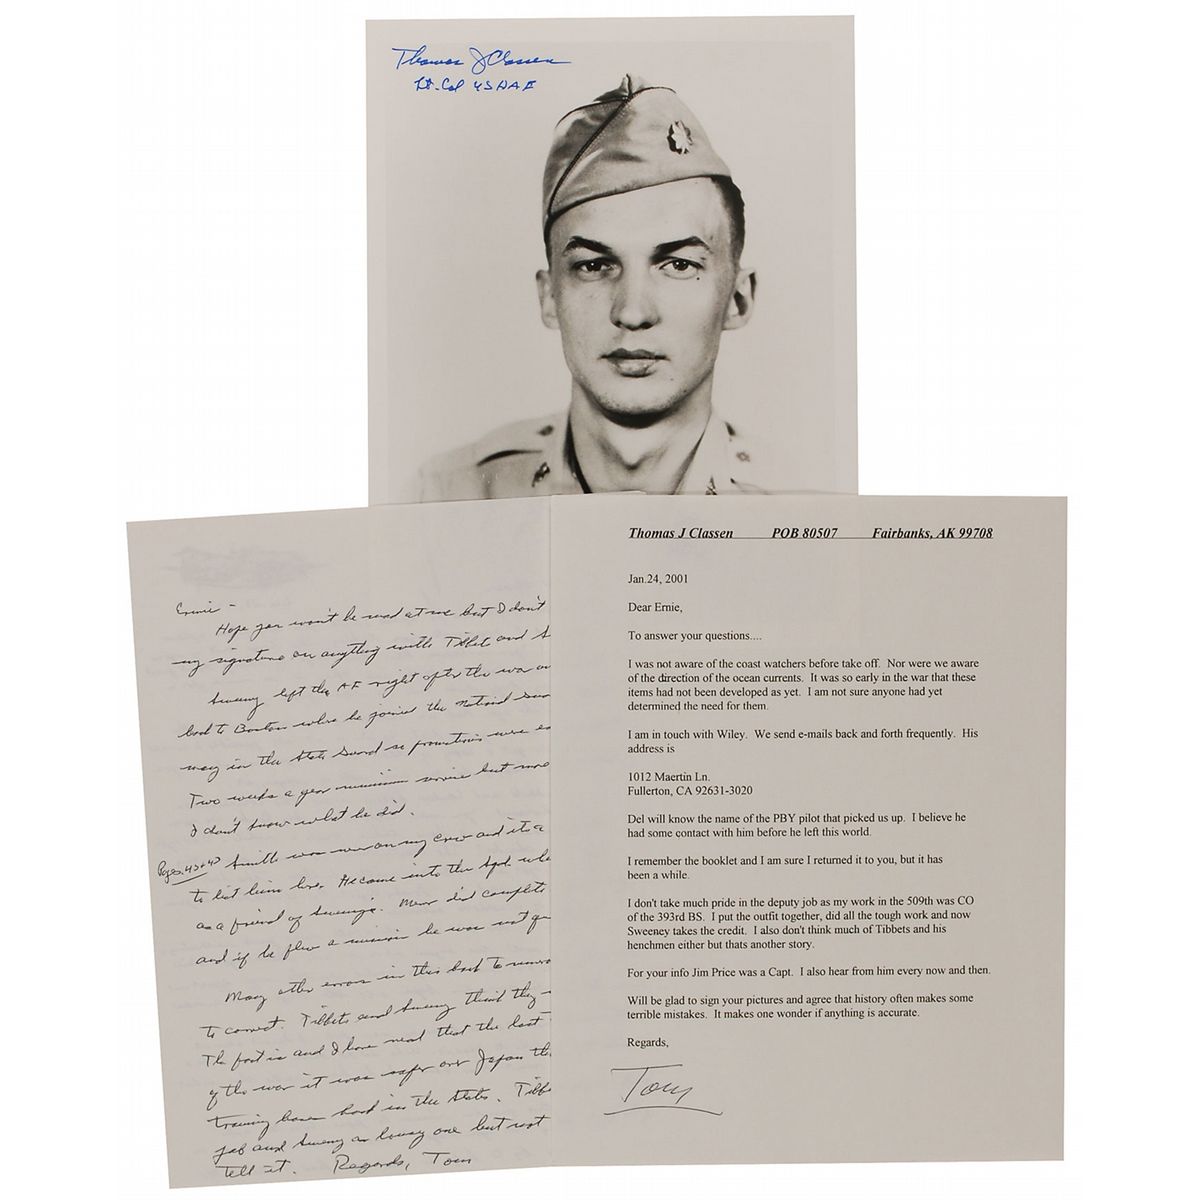 Thomas J Classen
Lt. Col USAAF
Ernie -
Hope you won't be mad at me but I don't
my signature on anything with Tibbets and S
Sweeney left the AF right after the war an
back to Boston where he joined the National Guar
way in the State Guard so promotions were ea
Two weeks a year minimum service but more
I don't know what he did.
Pages 42+43 Smith was never on my crew and its a
to list him here. He came into the Sqd. whe
as a friend of Sweeney's. Never did complete
and if he flew a mission he was not qu
Many other errors in this book to
to correct. Tibbets and Sweeney think they
The fact is and I have read that the last
of the war it was safer over Japan th
training bases back in the States. Tibbe
job and Sweeney a lousy one but not
tell it. Regards, Tom
Thomas J Classen POB 80507 Fairbanks, AK 99708
Jan.24, 2001
Dear Ernie,
To answer your questions....
I was not aware of the coast watchers before take off. Nor were we aware
of the direction of the ocean currents. It was so early in the war that these
items had not been developed as yet. I am not sure anyone had yet
determined the need for them.
I am in touch with Wiley. We send e-mails back and forth frequently. His
address is
1012 Maertin Ln.
Fullerton, CA 92631-3020
Del will know the name of the PBY pilot that picked us up. I believe he
had some contact with him before he left this world.
I remember the booklet and I am sure I returned it to you, but it has
been a while.
I don't take much pride in the deputy job as my work in the 509th was CO
of the 393rd BS. I put the outfit together, did all the tough work and now
Sweeney takes the credit. I also don't think much of Tibbets and his
henchmen either but thats another story.
For your info Jim Price was a Capt. I also hear from him every now and then.
Will be glad to sign your pictures and agree that history often makes some
terrible mistakes. It makes one wonder if anything is accurate.
Regards,
Tom